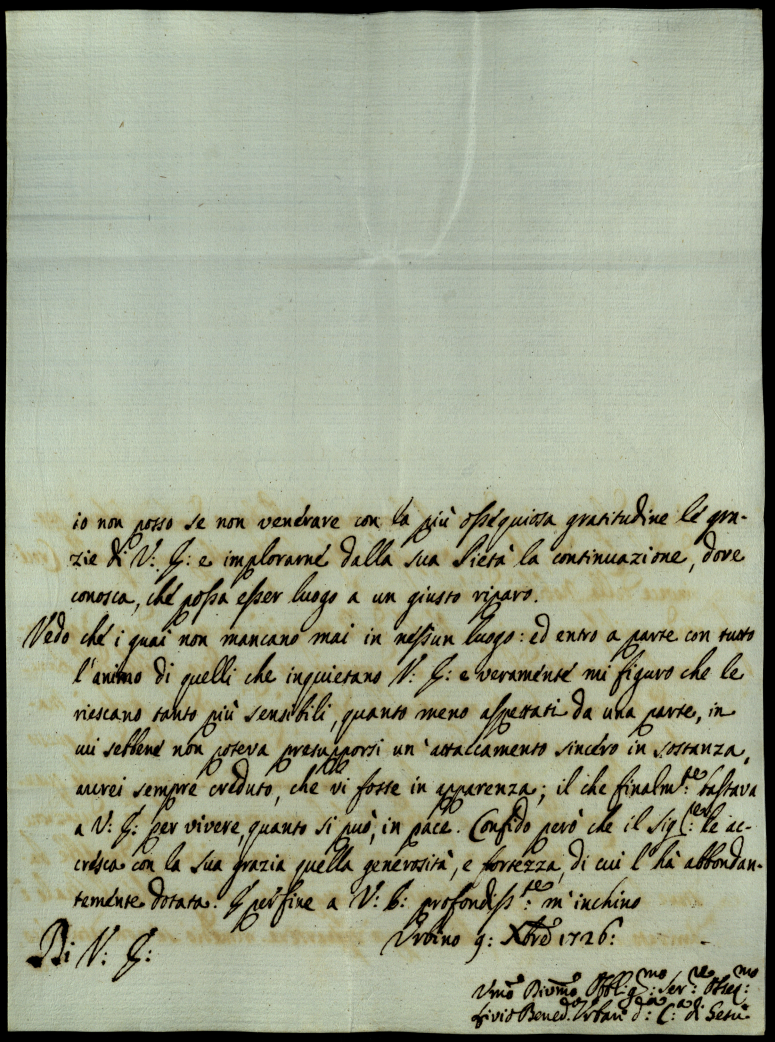 io non posso se non venerare con la più ossequiosa gratitudine le gra-
zie di V: E: e implorarne dalla sua Pietà la continuazione, dove
conosca, che possa esser luogo a un giusto riparo.
Vedo che i guai non mancano mai in nessun luogo: ed entro a parte con tutto
l'animo di quelli che inquietano V: E: e veramente mi figuro che le
riescano tanto più sensibili, quanto meno aspettati da una parte, in
cui sebbene non poteva presupporsi un' attaccamento sincero in sostanza,
aurei sempre creduto, che vi fosse in apparenza; il che finalm:te bastava
a V: E: per vivere, quanto si può, in pace. Confido però che il Sig:re le ac-
cresca con la sua grazia quella generosità, e fortezza, di cui l'hà abbondan-
temente dotata. E per fine a V: E: profondiss:te m'inchino
Urbino 9: Xbre 1726:
Di V: E:
Umo Divmo Obblig:mo Ser:re Osseq:mo
Livio Bened: Urbani d:a C:a di Gesù